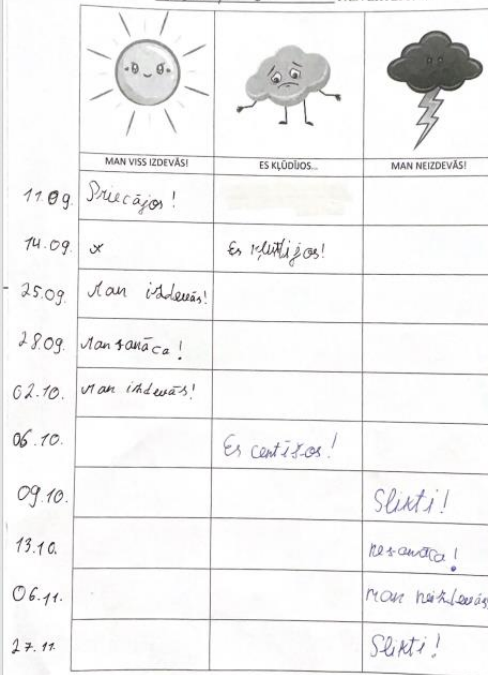 MAN VISS IZDEVĀS! ES KĻŪDĪJOS... MAN NEIZDEVĀS!
11.09. Priecājos!
14.09. x Es kļutijos!
25.09. Man izdevās!
28.09. Man sanāca!
02.10. Man izdevās!
06.10. Es centīzos!
09.10. Slikti!
13.10. nesanāca!
06.11. Man neizdevās
27.11. Slikti!